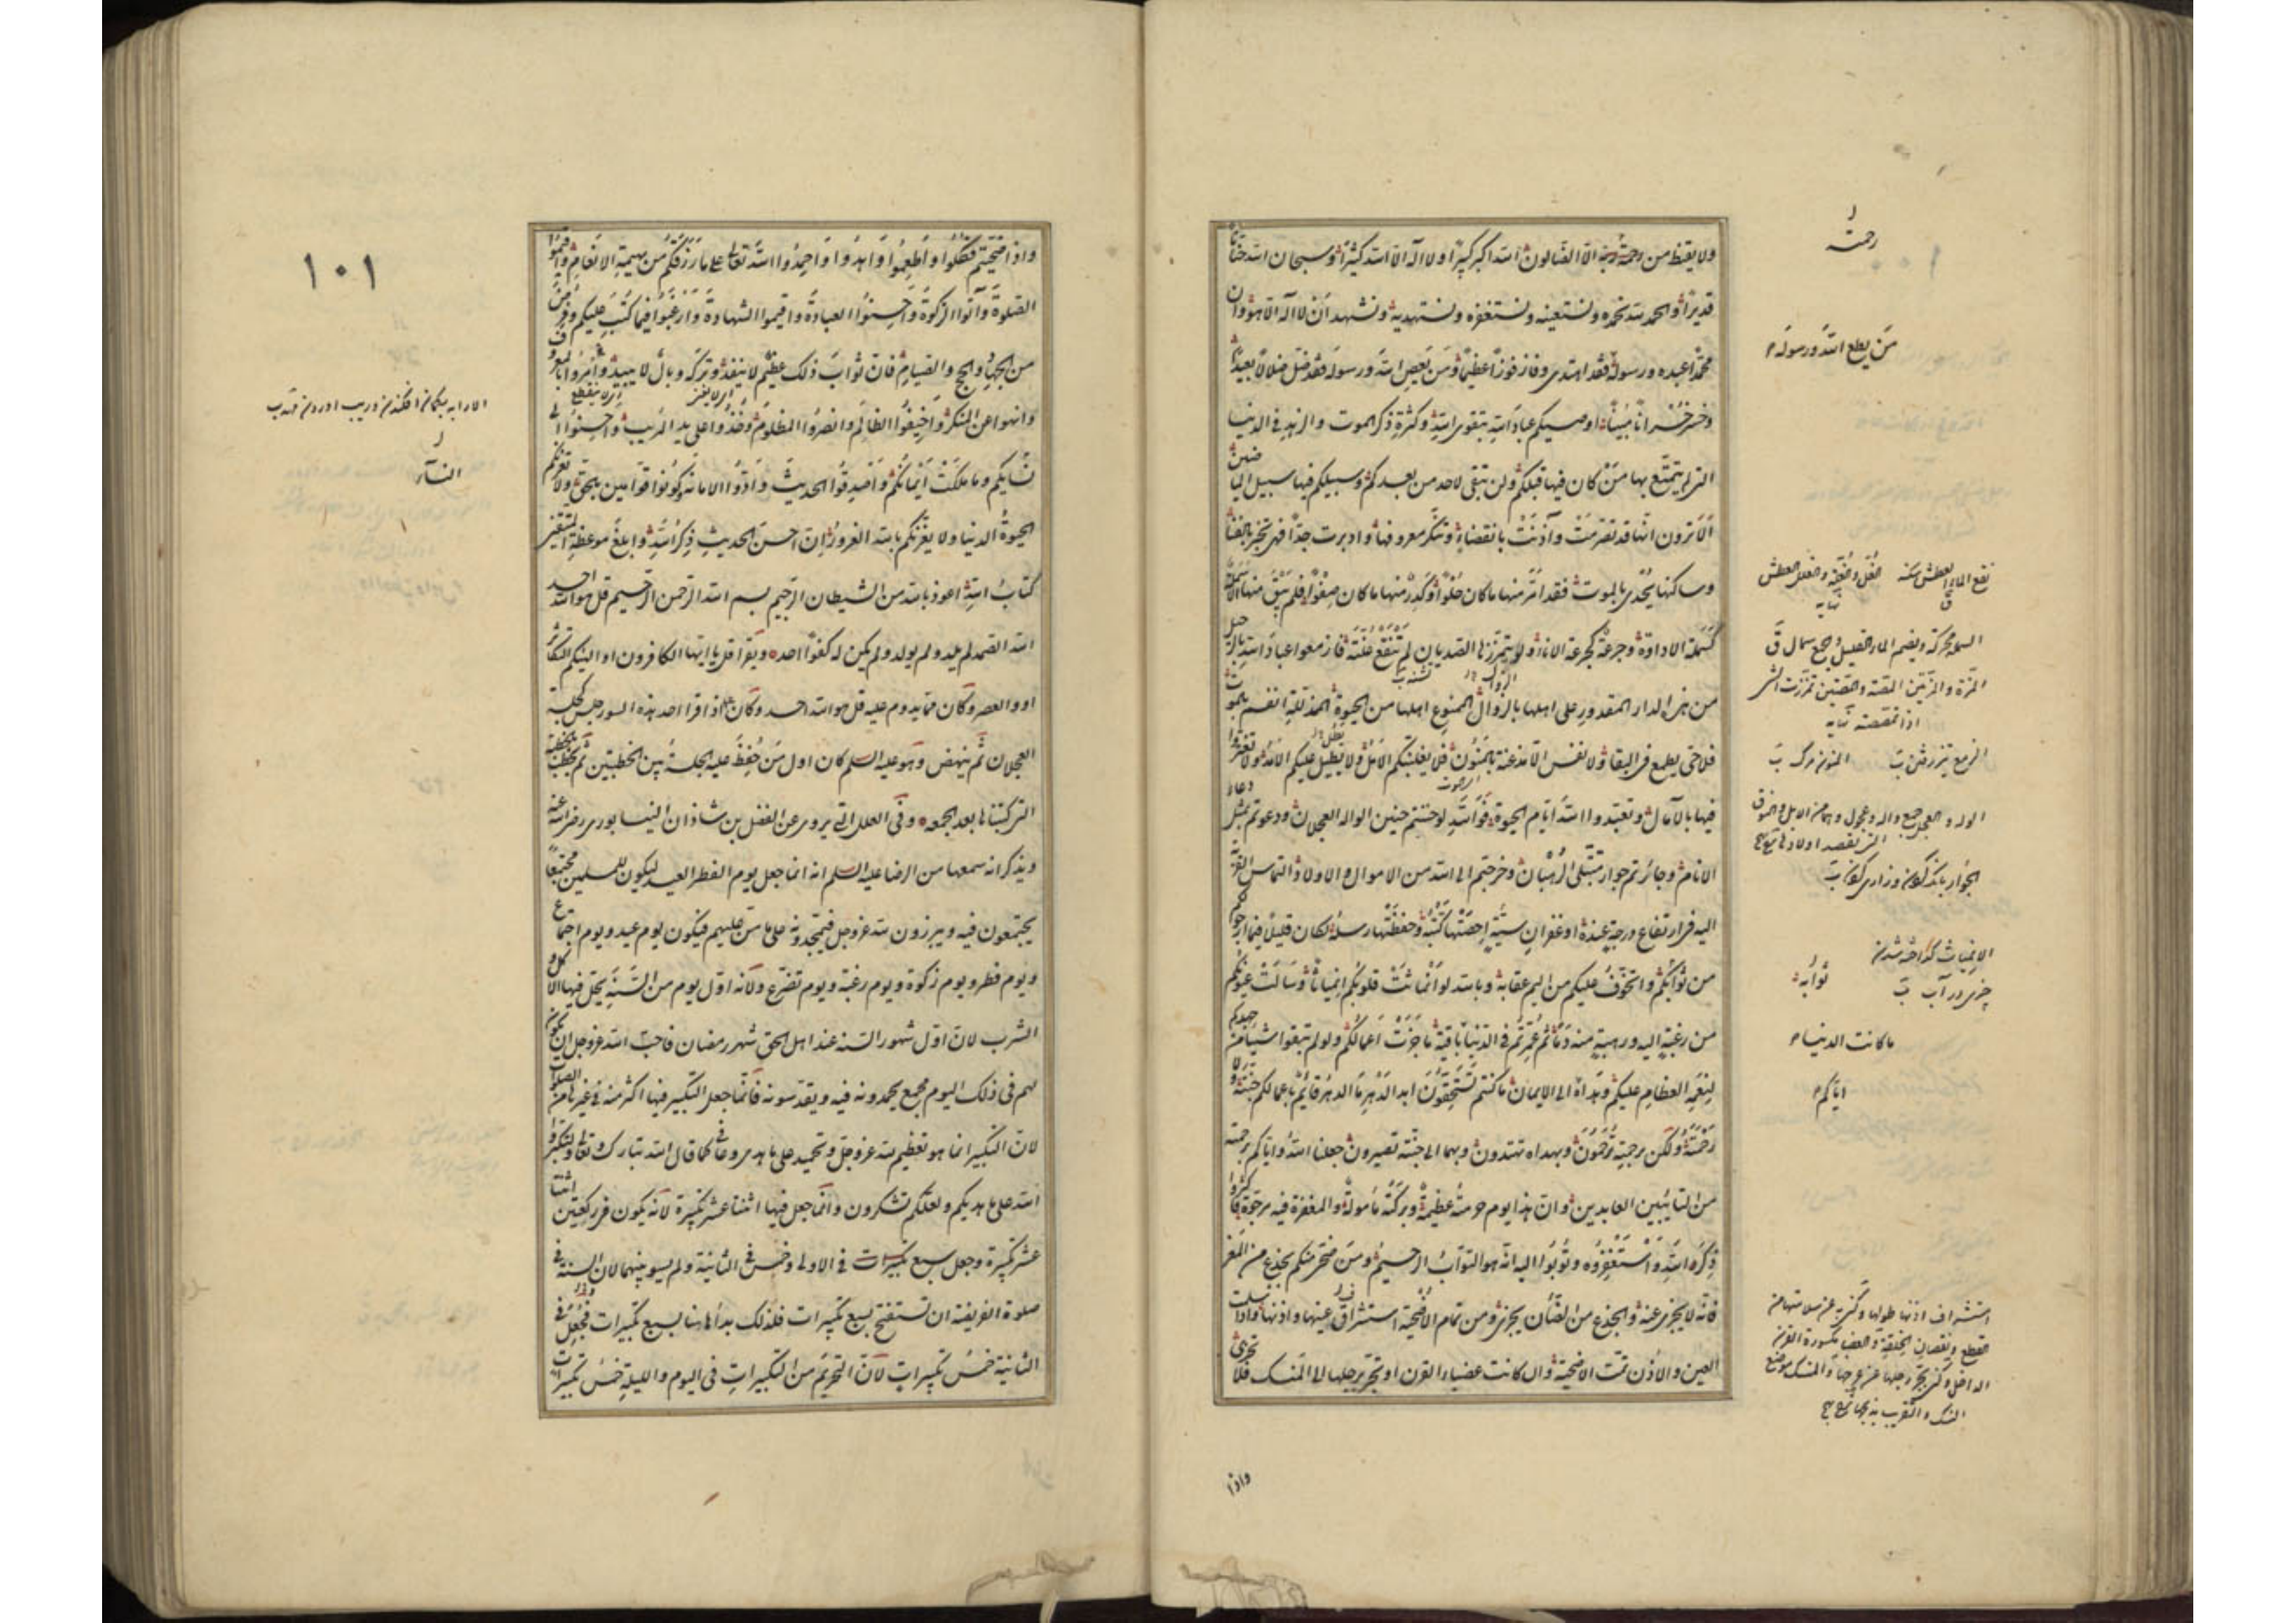 ولا يقنط من رحمته الا الضالون الله اكبر كبيرا ولا اله الا الله كثيرا وسبحان الله حنانا
قديرا والحمد لله نحمده ونستعينه ونستغفره ونستهديه ونشهد ان لا اله الا هو وان
محمدا عبده ورسوله فقد اهتدى وفاز فوزا عظيما ومن يعص الله ورسوله فقد ضل ضلالا بعيدا
وخسر خسرانا مبينا اوصيكم عباد الله بتقوى الله وكثرة ذكر الموت والزهد في الدنيا
التي لم يتمتع بها من كان فيها قبلكم ولن تبقى لاحد من بعدكم وسبيلكم فيها سبيل الماضين
الا ترون انها قد تصرمت وآذنت بانقضاء وتنكر معروفها وادبرت جدا فهي تخبر بالفناء
وساكنها يحدى بالموت فقد امر منها ما كان حلوا وكدر منها ما كان صفوا فلم يبق منها الا سملة
كسملة الاداوة وجرعة كجرعة الاناء لو يتمززها الصديان لم تنقع غلته فازمعوا عباد الله بالرحيل
من هذه الدار المقدور على اهلها بالزوال الممنوع اهلها من الحيوة المذللة انفسهم بالموت
فلا حي يطمع في البقاء ولا نفس الا مذعنة بالمنون فلا يغلبنكم الامل ولا يطل عليكم الامد ولا تغتروا
فيها بالآمال وتعبدوا الله ايام الحيوة فوالله لو حننتم حنين الواله العجلان ودعوتم بمثل دعاء
الانام وجأرتم جؤار متبتلي الرهبان وخرجتم الى الله من الاموال والاولاد التماس القربة
اليه في ارتفاع درجة عنده او غفران سيئة احصتها كتبته وحفظتها رسله لكان قليلا فيما ارجو لكم
من ثوابكم واتخوف عليكم من اليم عقابه وبالله لو انماثت قلوبكم انمياثا وسالت عيونكم
من رغبة اليه ورهبة منه دما ثم عمرتم في الدنيا باقية ما جزت اعمالكم ولو لم تبقوا شيئا من جهدكم
لنعمه العظام عليكم وهداه الى الايمان ما كنتم تستحقون ابد الدهر ما الدهر قائم باعمالكم جنته ولا
رحمته ولكن برحمته ترحمون وبهداه تهتدون وبهما الى جنته تصيرون جعلنا الله واياكم برحمته
من التايبين العابدين وان هذا يوم حرمته عظيمة وبركته مأمولة والمغفرة فيه مرجوة فاكثروا
ذكر الله واستغفروه وتوبوا اليه انه هو التواب الرحيم ومن ضحى منكم بجذع من المعز
فانه لا يجزي عنه والجذع من الضأن يجزي ومن تمام الاضحية استشراف عينها واذنها واذا سلمت
العين والاذن تمت الاضحية وان كانت عضباء القرن او تجر برجلها الى المنسك فلا تجزي
رحمة
من يطع الله ورسوله
ما كانت الدنيا
اياكم
واذا
واذا ضحيتم فكلوا واطعموا واهدوا واحمدوا الله تعالى على ما رزقكم من بهيمة الانعام واقيموا
الصلوة وآتوا الزكوة واحسنوا العبادة واقيموا الشهادة وارغبوا فيما كتب عليكم وفرض
من الجهاد والحج والصيام فان ثواب ذلك عظيم لا ينفد وتركه وبال لا يبيد وأمروا بالمعروف
وانهوا عن المنكر واخيفوا الظالم وانصروا المظلوم وخذوا على يد المريب واحسنوا الى
نسايكم وما ملكت ايمانكم واصدقوا الحديث وادوا الامانة وكونوا قوامين بالحق ولا تغرنكم
الحيوة الدنيا ولا يغرنكم بالله الغرور ان احسن الحديث ذكر الله وابلغ موعظة المتقين
كتاب الله اعوذ بالله من الشيطان الرجيم بسم الله الرحمن الرحيم قل هو الله احد
الله الصمد لم يلد ولم يولد ولم يكن له كفوا احد ويقرا قل يا ايها الكافرون او الهيكم التكاثر
او والعصر وكان مما يدوم عليه قل هو الله احد وكان اذا قرا احد هذه السور جلس كجلسة
العجلان ثم ينهض وهو عليه السلم كان اول من حفظ عليه الجلسة بين الخطبتين ثم يخطب بالخطبة
التي كتبناها بعد الجمعه وفي العلل التي يروى عن الفضل بن شاذان النيسابوري رضى الله عنه
ويذكر انه سمعها من الرضا عليه السلم انه انما جعل يوم الفطر العيد ليكون للمسلمين مجتمعا
يجتمعون فيه ويبرزون لله عز وجل فيمجدونه على ما من عليهم فيكون يوم عيد ويوم اجتماع
ويوم فطر ويوم زكوة ويوم رغبة ويوم تضرع ولانه اول يوم من السنة يحل فيها الاكل و
الشرب لان اول شهور السنه عند اهل الحق شهر رمضان فاحب الله عز وجل ان يكون
لهم في ذلك اليوم مجمع يحمدونه فيه ويقدسونه فانما جعل التكبير فيها اكثر منه في غيرها من الصلوات
لان التكبير انما هو تعظيم لله عز وجل وتمجيد على ما هدى وعافى كما قال الله تبارك وتعالى ولتكبروا
الله على ما هديكم ولعلكم تشكرون وانما جعل فيها اثنتا عشر تكبيرة لانه يكون في ركعتين اثنتا
عشر تكبيرة وجعل سبع تكبيرات في الاولى وخمس في الثانية ولم يسو بينهما لان السنة في
صلوة الفريضة ان تستفتح بسبع تكبيرات فلذلك بدأ هاهنا بسبع تكبيرات وجعل في
الثانية خمس تكبيرات لان التحريم من التكبيرات في اليوم والليلة خمس تكبيرات
١٠١
النسآء